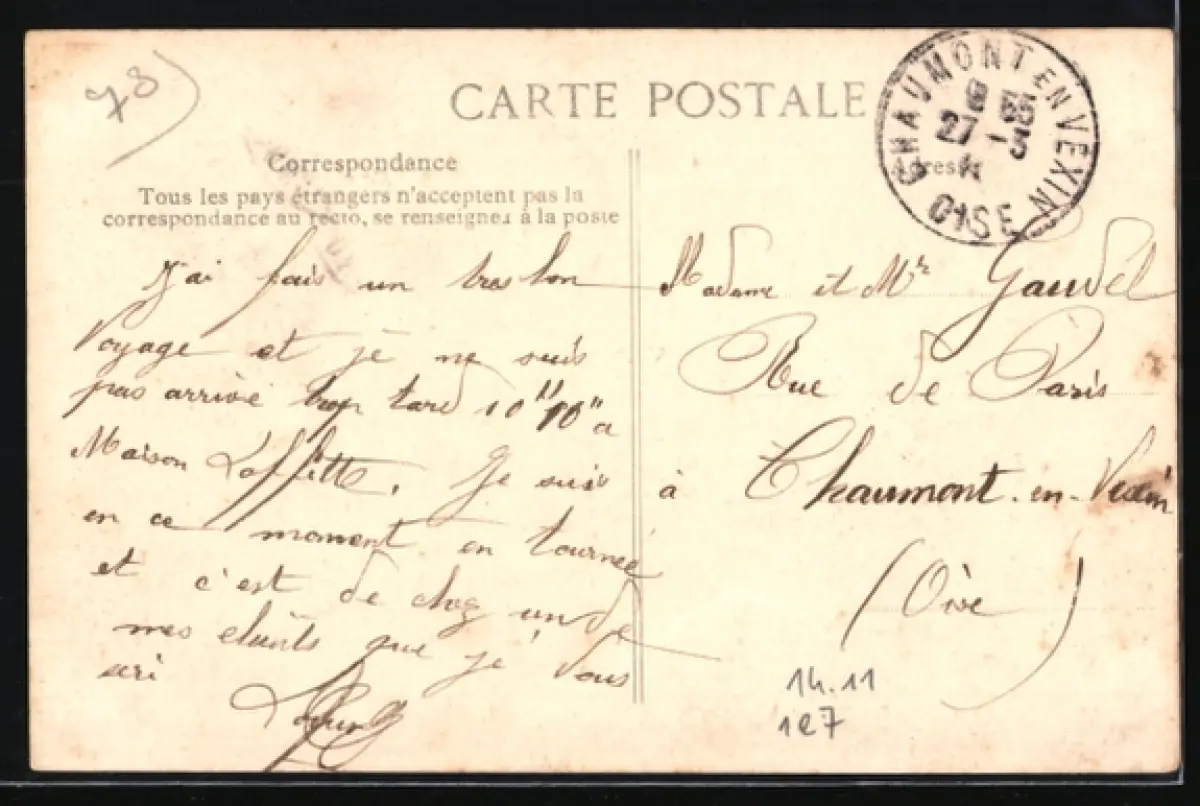 78
CARTE POSTALE
CHAUMONT EN VEXIN
27 - 5
OISE
Correspondance
Adresse
Tous les pays étrangers n'acceptent pas la
correspondance au recto, se renseigner à la poste
J'ai fais un tres bon
Voyage et je ne suis
pas arrivé trop tard 10" 10" a
Maison Laffitte. Je suis
en ce moment en tournée
et c'est de chez un de
mes clients que je Vous
ecri
Madame et Mr Gaudel
Rue de Paris
à Chaumont-en-Vexin
(Oise)
14.11
127